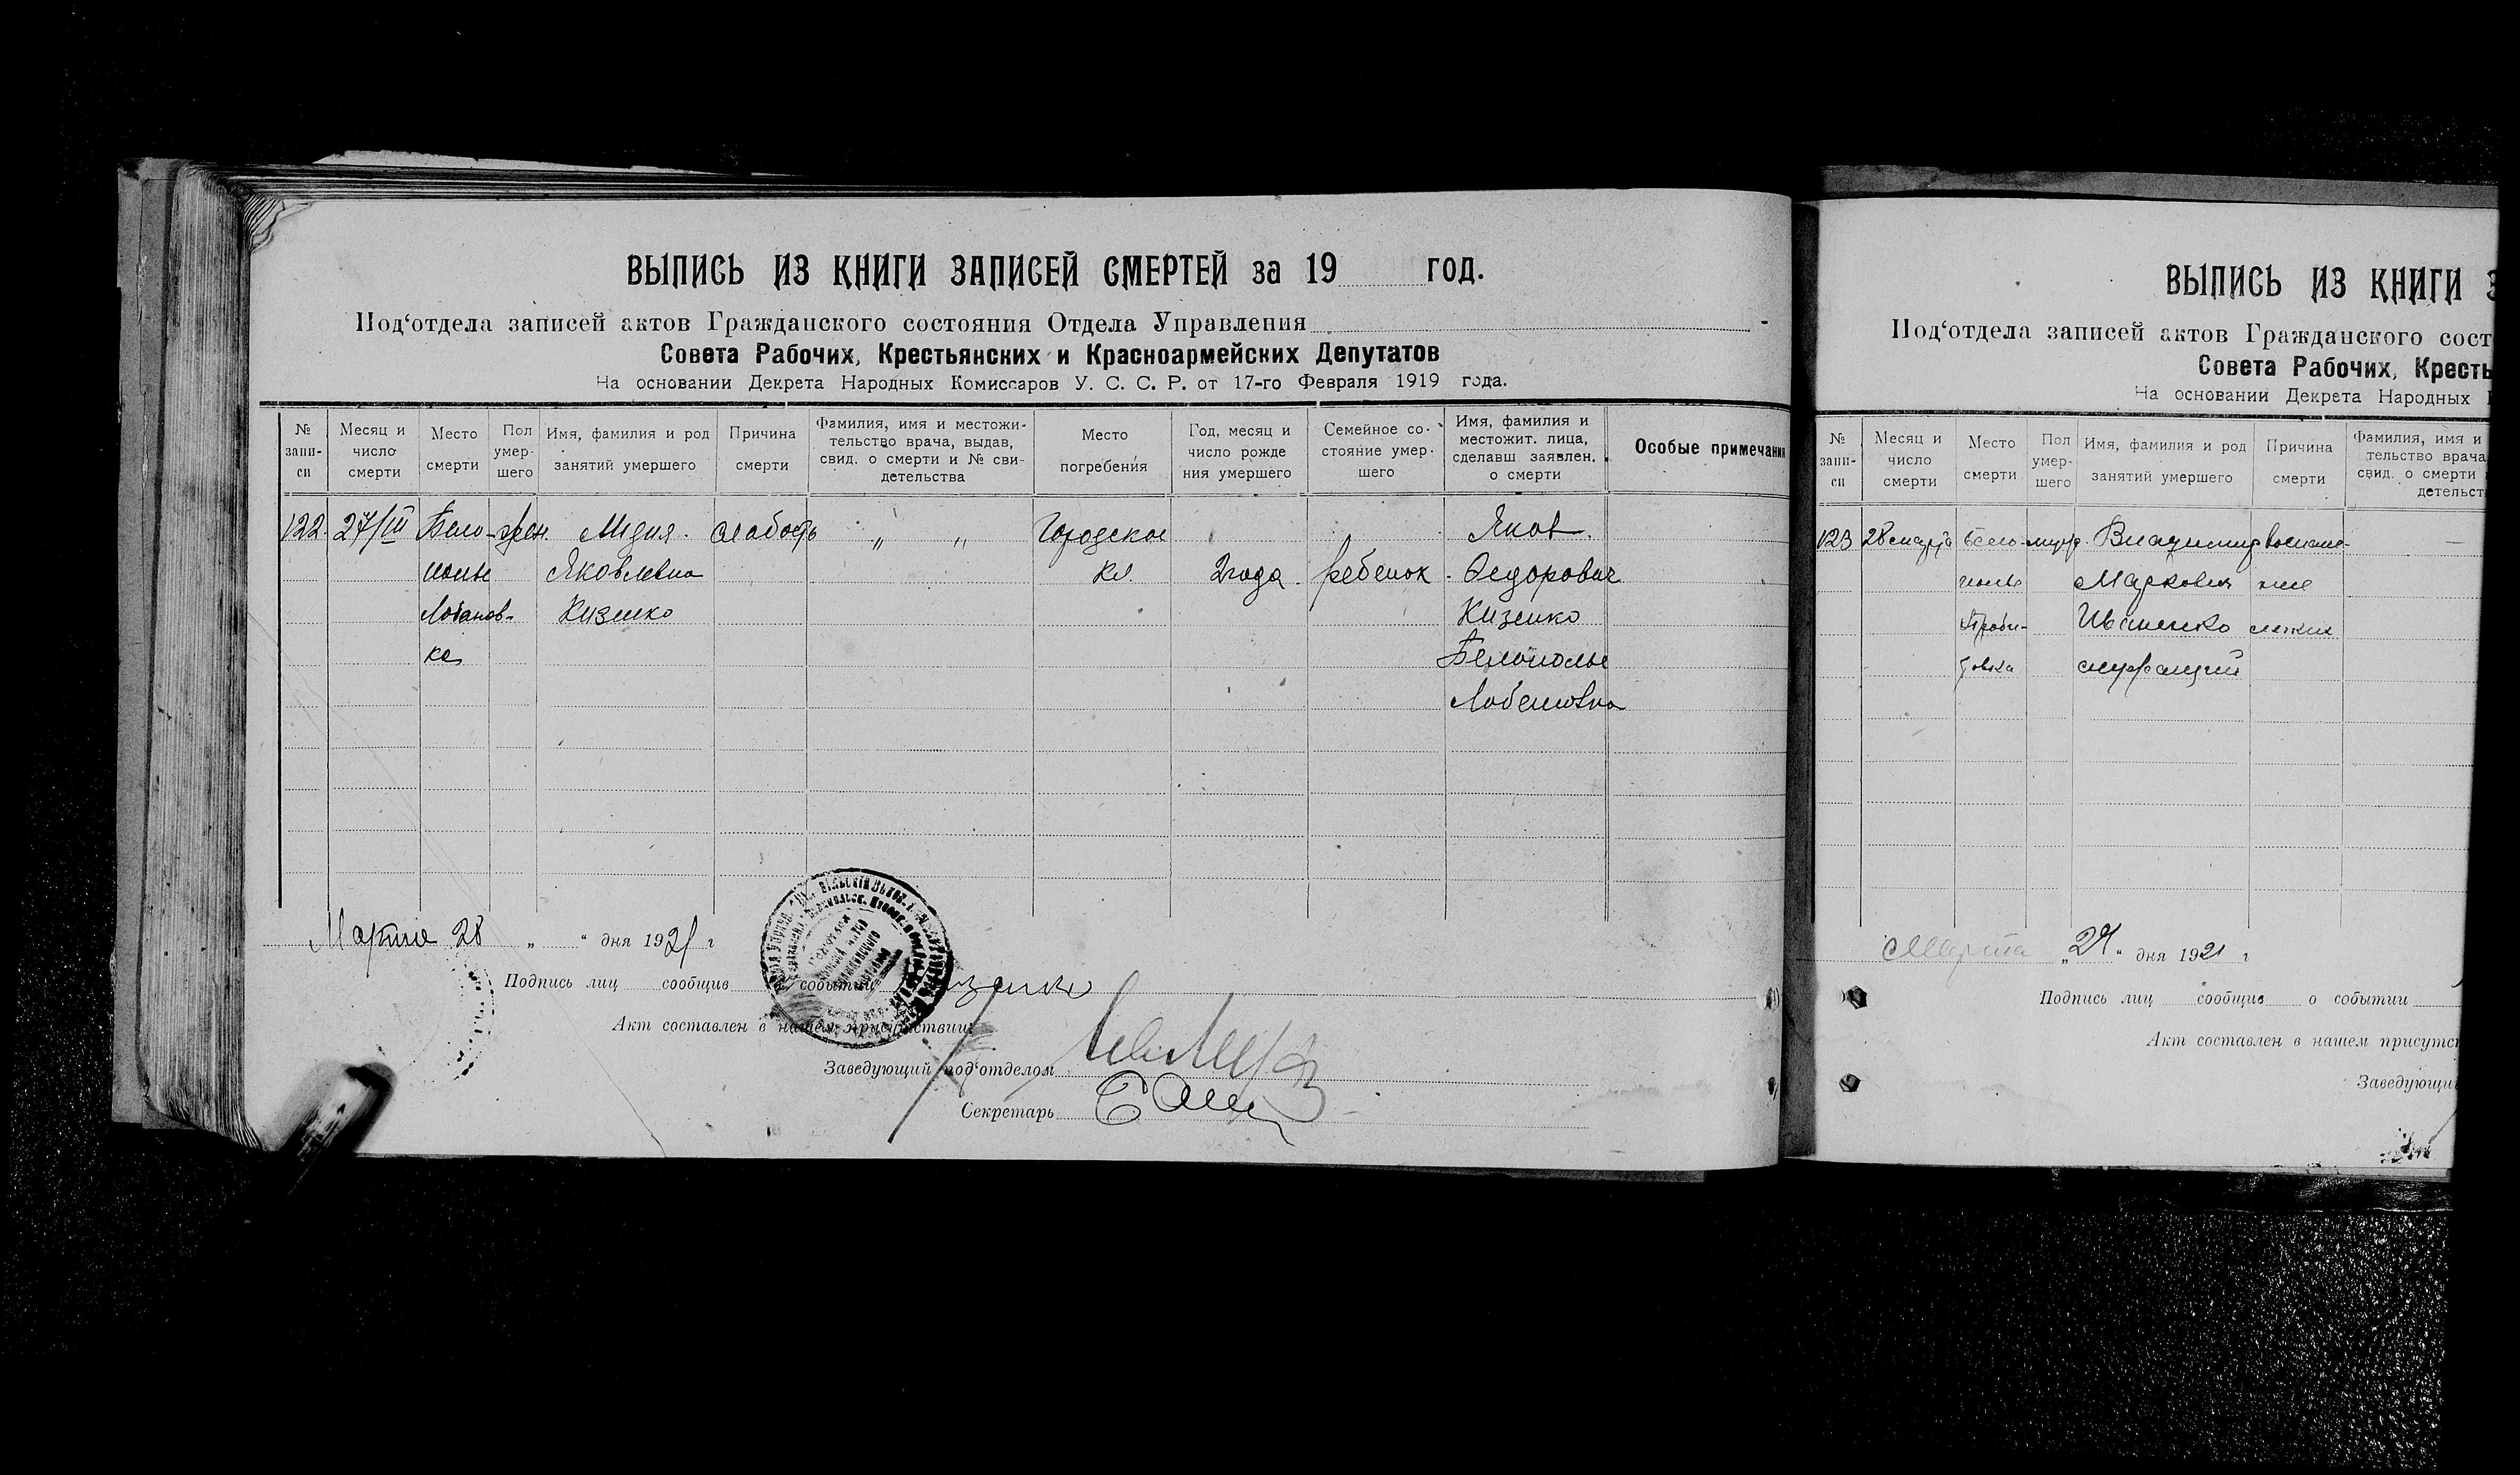 ВЫПИСЬ ИЗ КНИГИ ЗАПИСЕЙ СМЕРТЕЙ за 19 год.
Под‘отдела записей актов Гражданского состояния Отдела Управления
Совета Рабочих, Крестьянских и Красноармейских Депутатов
На основании Декрета Народных Комиссаров У. С. С. Р. от 17-го Февраля 1919 года.
№ запи-
си
Месяц и
число
смерти
Место
смерти
Пол
умер-
шего
Имя, фамилия и род
занятий умершего
Причина
смерти
Фамилия, имя и местожи-
тельство врача, выдав,
свид. о смерти и № сви-
детельства
Место
погребения
Год, месяц и
число рожде
ния умершего
Семейное со-
стояние умер-
шего
Имя, фамилия и
местожит. лица,
сделавш заявлен.
о смерти
Особые примечания
122. 27/III Бело- жен. Лидия. слабость „ „ Городское Яков.
полье Яковлевна кл. 2 года. ребенок. Федорович
Лобанов- Кизенко Кизенко
ка Белополье
Лобановка
Марта 28 „ “ дня 1921 г
Подпись лиц сообщив событии
Акт составлен в нашем присутствии:
Заведующий под‘отделом
Секретарь
ВЫПИСЬ ИЗ КНИГИ
Под‘отдела записей актов Гражданского сост
Совета Рабочих, Кресть
На основании Декрета Народных
№
запи-
си
Месяц и
число
смерти
Место
смерти
Пол
умер-
шего
Имя, фамилия и род
занятий умершего
Причина
смерти
Фамилия, имя и
тельство врача
свид. о смерти
детельст
123 28 марта Бело- муж. Владимир воспале- —
полье Маркович ние
Иваненко легких
служащий
Марта „29“ дня 1921 г
Подпись лиц сообщив о событии
Акт составлен в нашем присутст
Заведующи